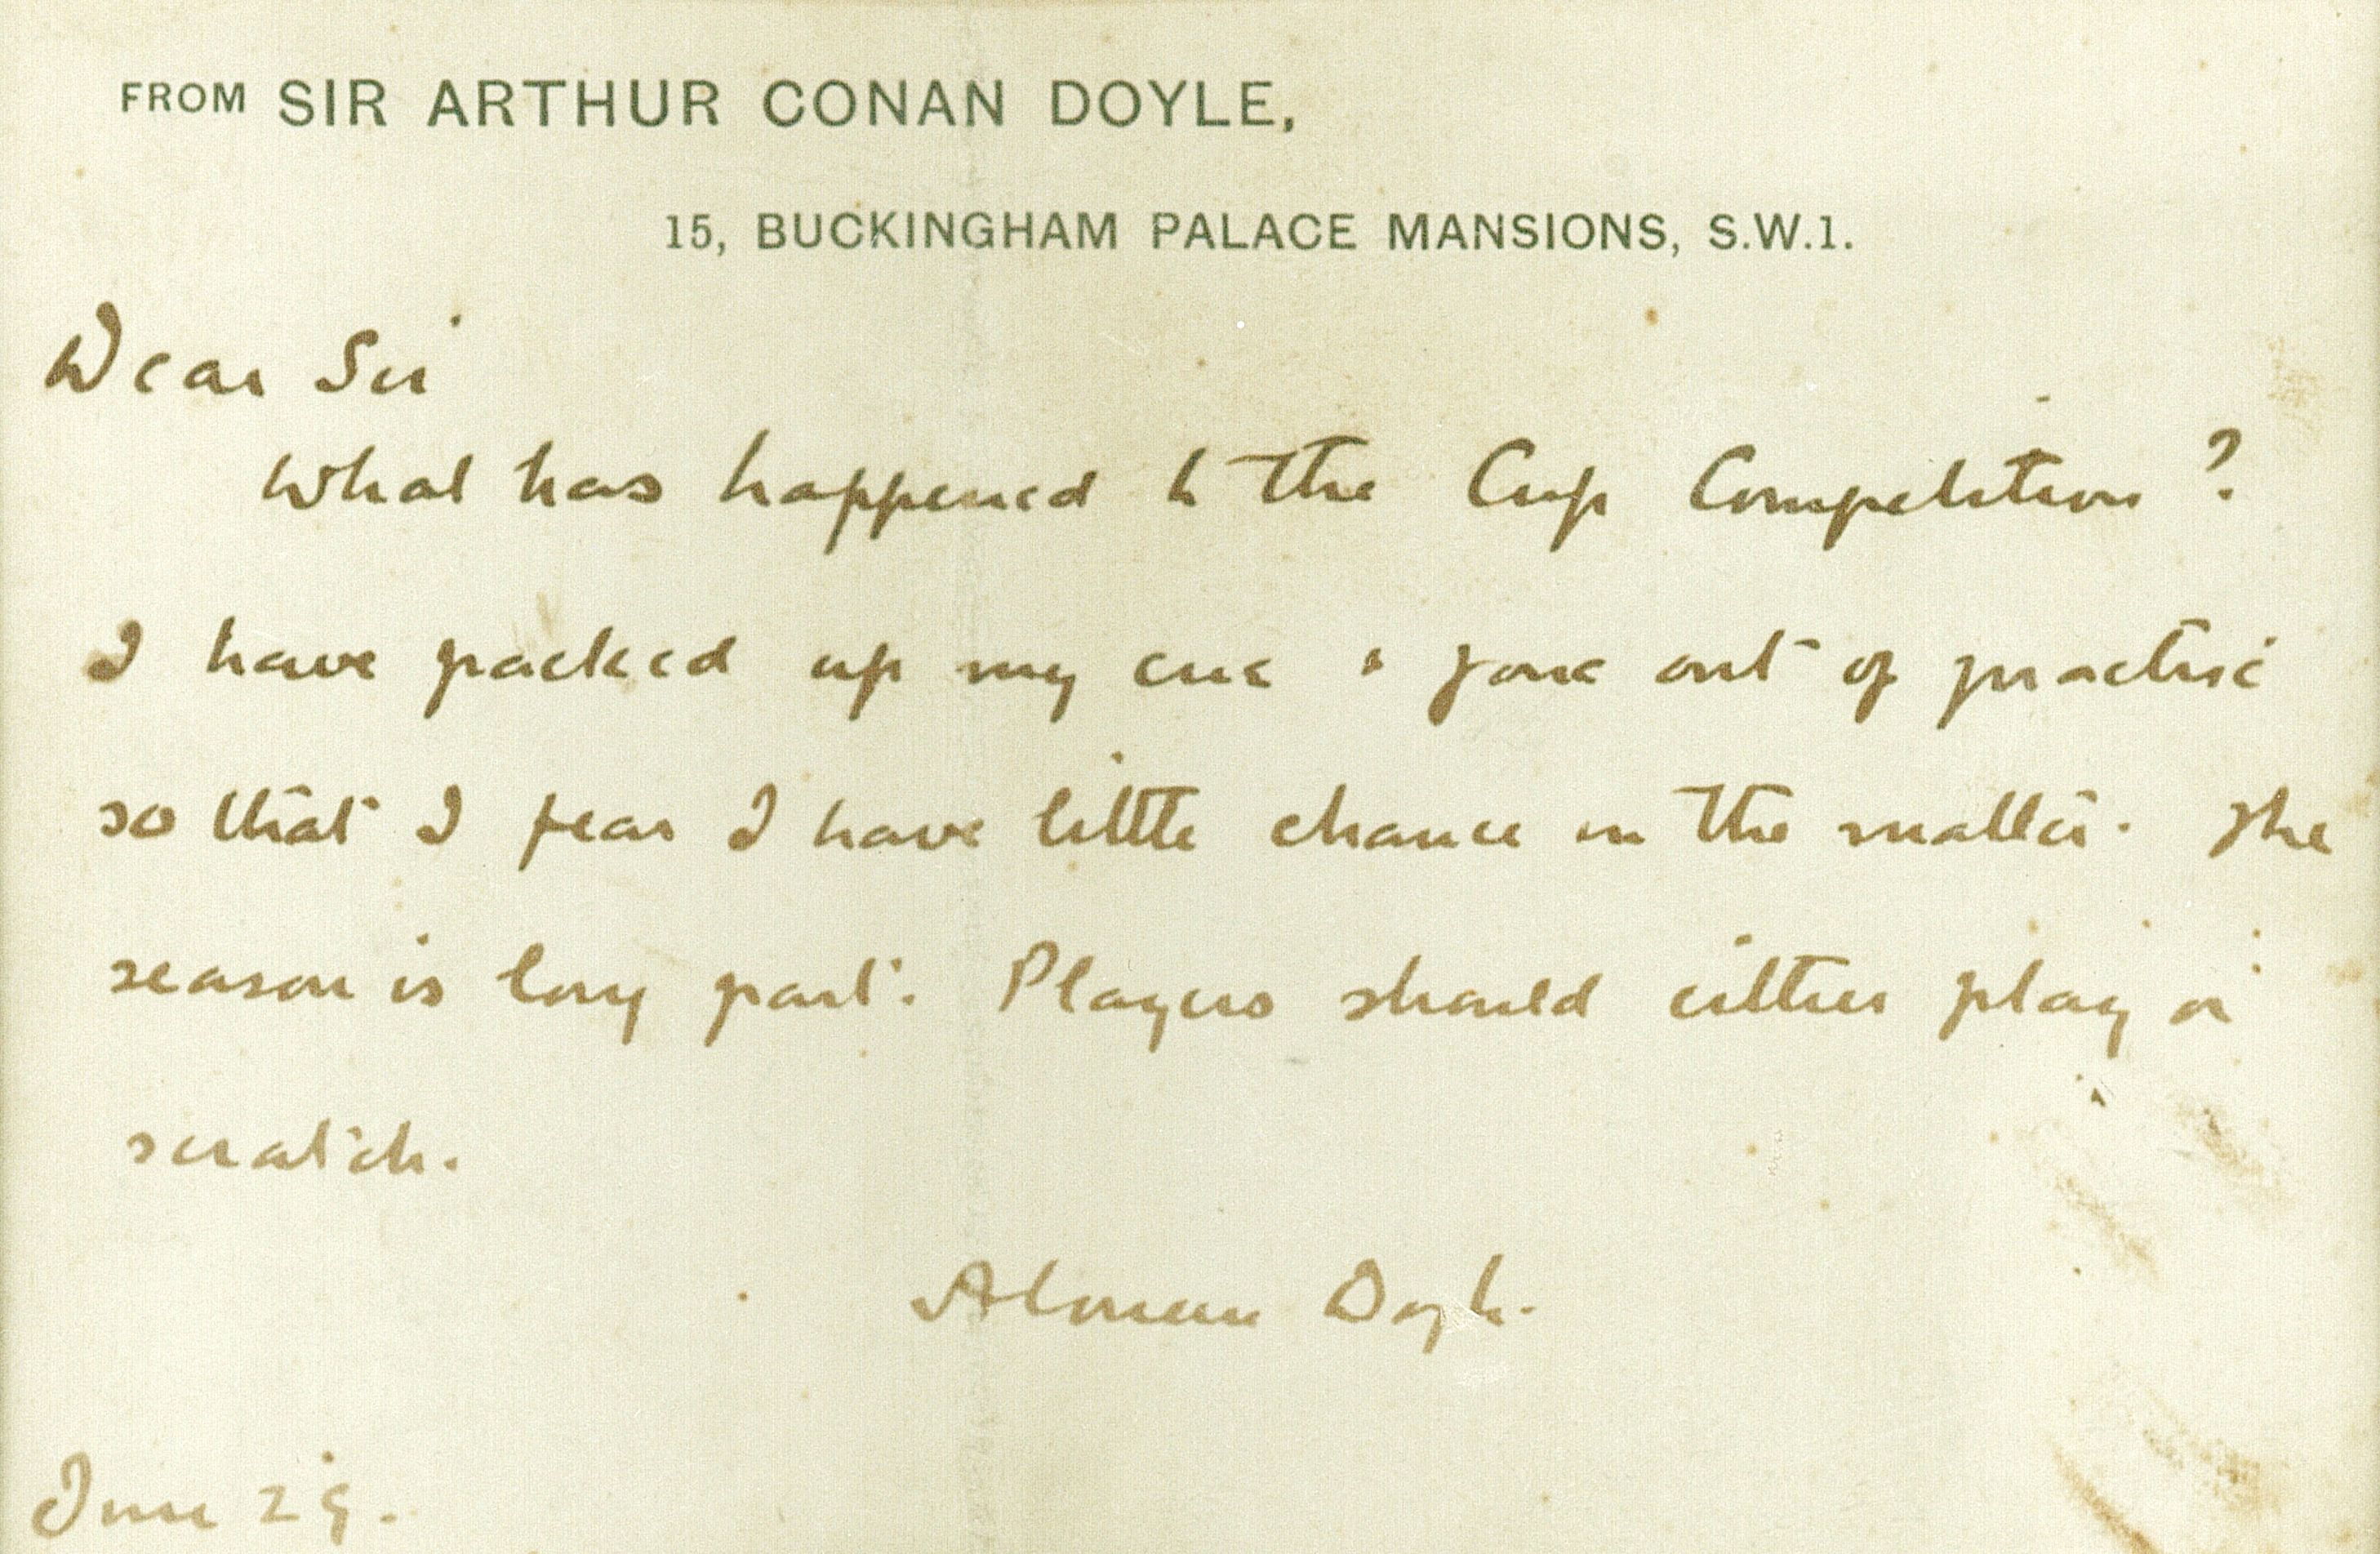 FROM SIR ARTHUR CONAN DOYLE,
15, BUCKINGHAM PALACE MANSIONS, S.W.1.
Dear Sir
What has happened to the Cup Competition?
I have packed up my cue & gone out of practice
so that I fear I have little chance in the matter. The
season is long past. Players should either play or
scratch.
A Conan Doyle.
June 29.